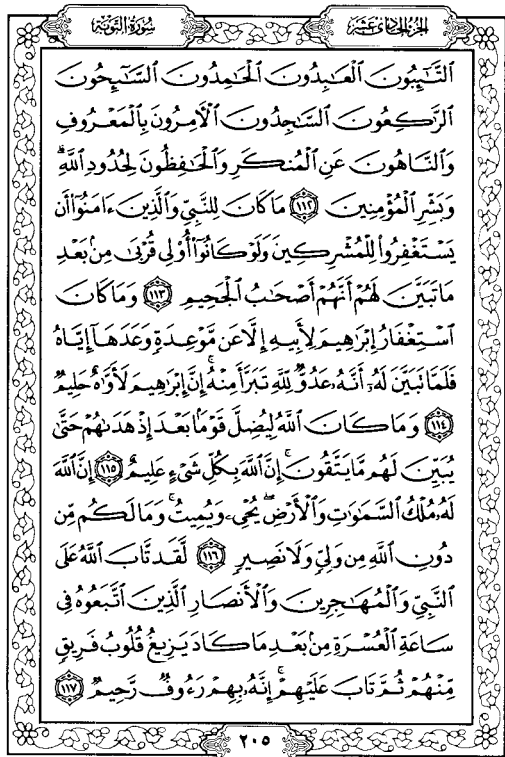 سُورَةُ التَّوْبَةِ
الجُزْءُ الحَادِي عَشَرَ
التَّٰٓئِبُونَ الْعَٰبِدُونَ الْحَٰمِدُونَ السَّٰٓئِحُونَ
الرَّٰكِعُونَ السَّٰجِدُونَ الْءَامِرُونَ بِالْمَعْرُوفِ
وَالنَّاهُونَ عَنِ الْمُنكَرِ وَالْحَٰفِظُونَ لِحُدُودِ اللَّهِۗ
وَبَشِّرِ الْمُؤْمِنِينَ ١١٢ مَا كَانَ لِلنَّبِيِّ وَالَّذِينَ ءَامَنُوٓا۟ أَن
يَسْتَغْفِرُوا۟ لِلْمُشْرِكِينَ وَلَوْ كَانُوٓا۟ أُو۟لِى قُرْبَىٰ مِنۢ بَعْدِ
مَا تَبَيَّنَ لَهُمْ أَنَّهُمْ أَصْحَٰبُ الْجَحِيمِ ١١٣ وَمَا كَانَ
اسْتِغْفَارُ إِبْرَٰهِيمَ لِأَبِيهِ إِلَّا عَن مَّوْعِدَةٍ وَعَدَهَآ إِيَّاهُ
فَلَمَّا تَبَيَّنَ لَهُۥٓ أَنَّهُۥ عَدُوٌّ لِّلَّهِ تَبَرَّأَ مِنْهُۚ إِنَّ إِبْرَٰهِيمَ لَأَوَّٰهٌ حَلِيمٌ
١١٤ وَمَا كَانَ اللَّهُ لِيُضِلَّ قَوْمًۢا بَعْدَ إِذْ هَدَىٰهُمْ حَتَّىٰ
يُبَيِّنَ لَهُم مَّا يَتَّقُونَۚ إِنَّ اللَّهَ بِكُلِّ شَىْءٍ عَلِيمٌ ١١٥ إِنَّ اللَّهَ
لَهُۥ مُلْكُ السَّمَٰوَٰتِ وَالْأَرْضِۖ يُحْىِۦ وَيُمِيتُۚ وَمَا لَكُم مِّن
دُونِ اللَّهِ مِن وَلِىٍّ وَلَا نَصِيرٍ ١١٦ لَّقَد تَّابَ اللَّهُ عَلَى
النَّبِىِّ وَالْمُهَٰجِرِينَ وَالْأَنصَارِ الَّذِينَ اتَّبَعُوهُ فِى
سَاعَةِ الْعُسْرَةِ مِنۢ بَعْدِ مَا كَادَ يَزِيغُ قُلُوبُ فَرِيقٍ
مِّنْهُمْ ثُمَّ تَابَ عَلَيْهِمْۚ إِنَّهُۥ بِهِمْ رَءُوفٌ رَّحِيمٌ ١١٧
٢٠٥